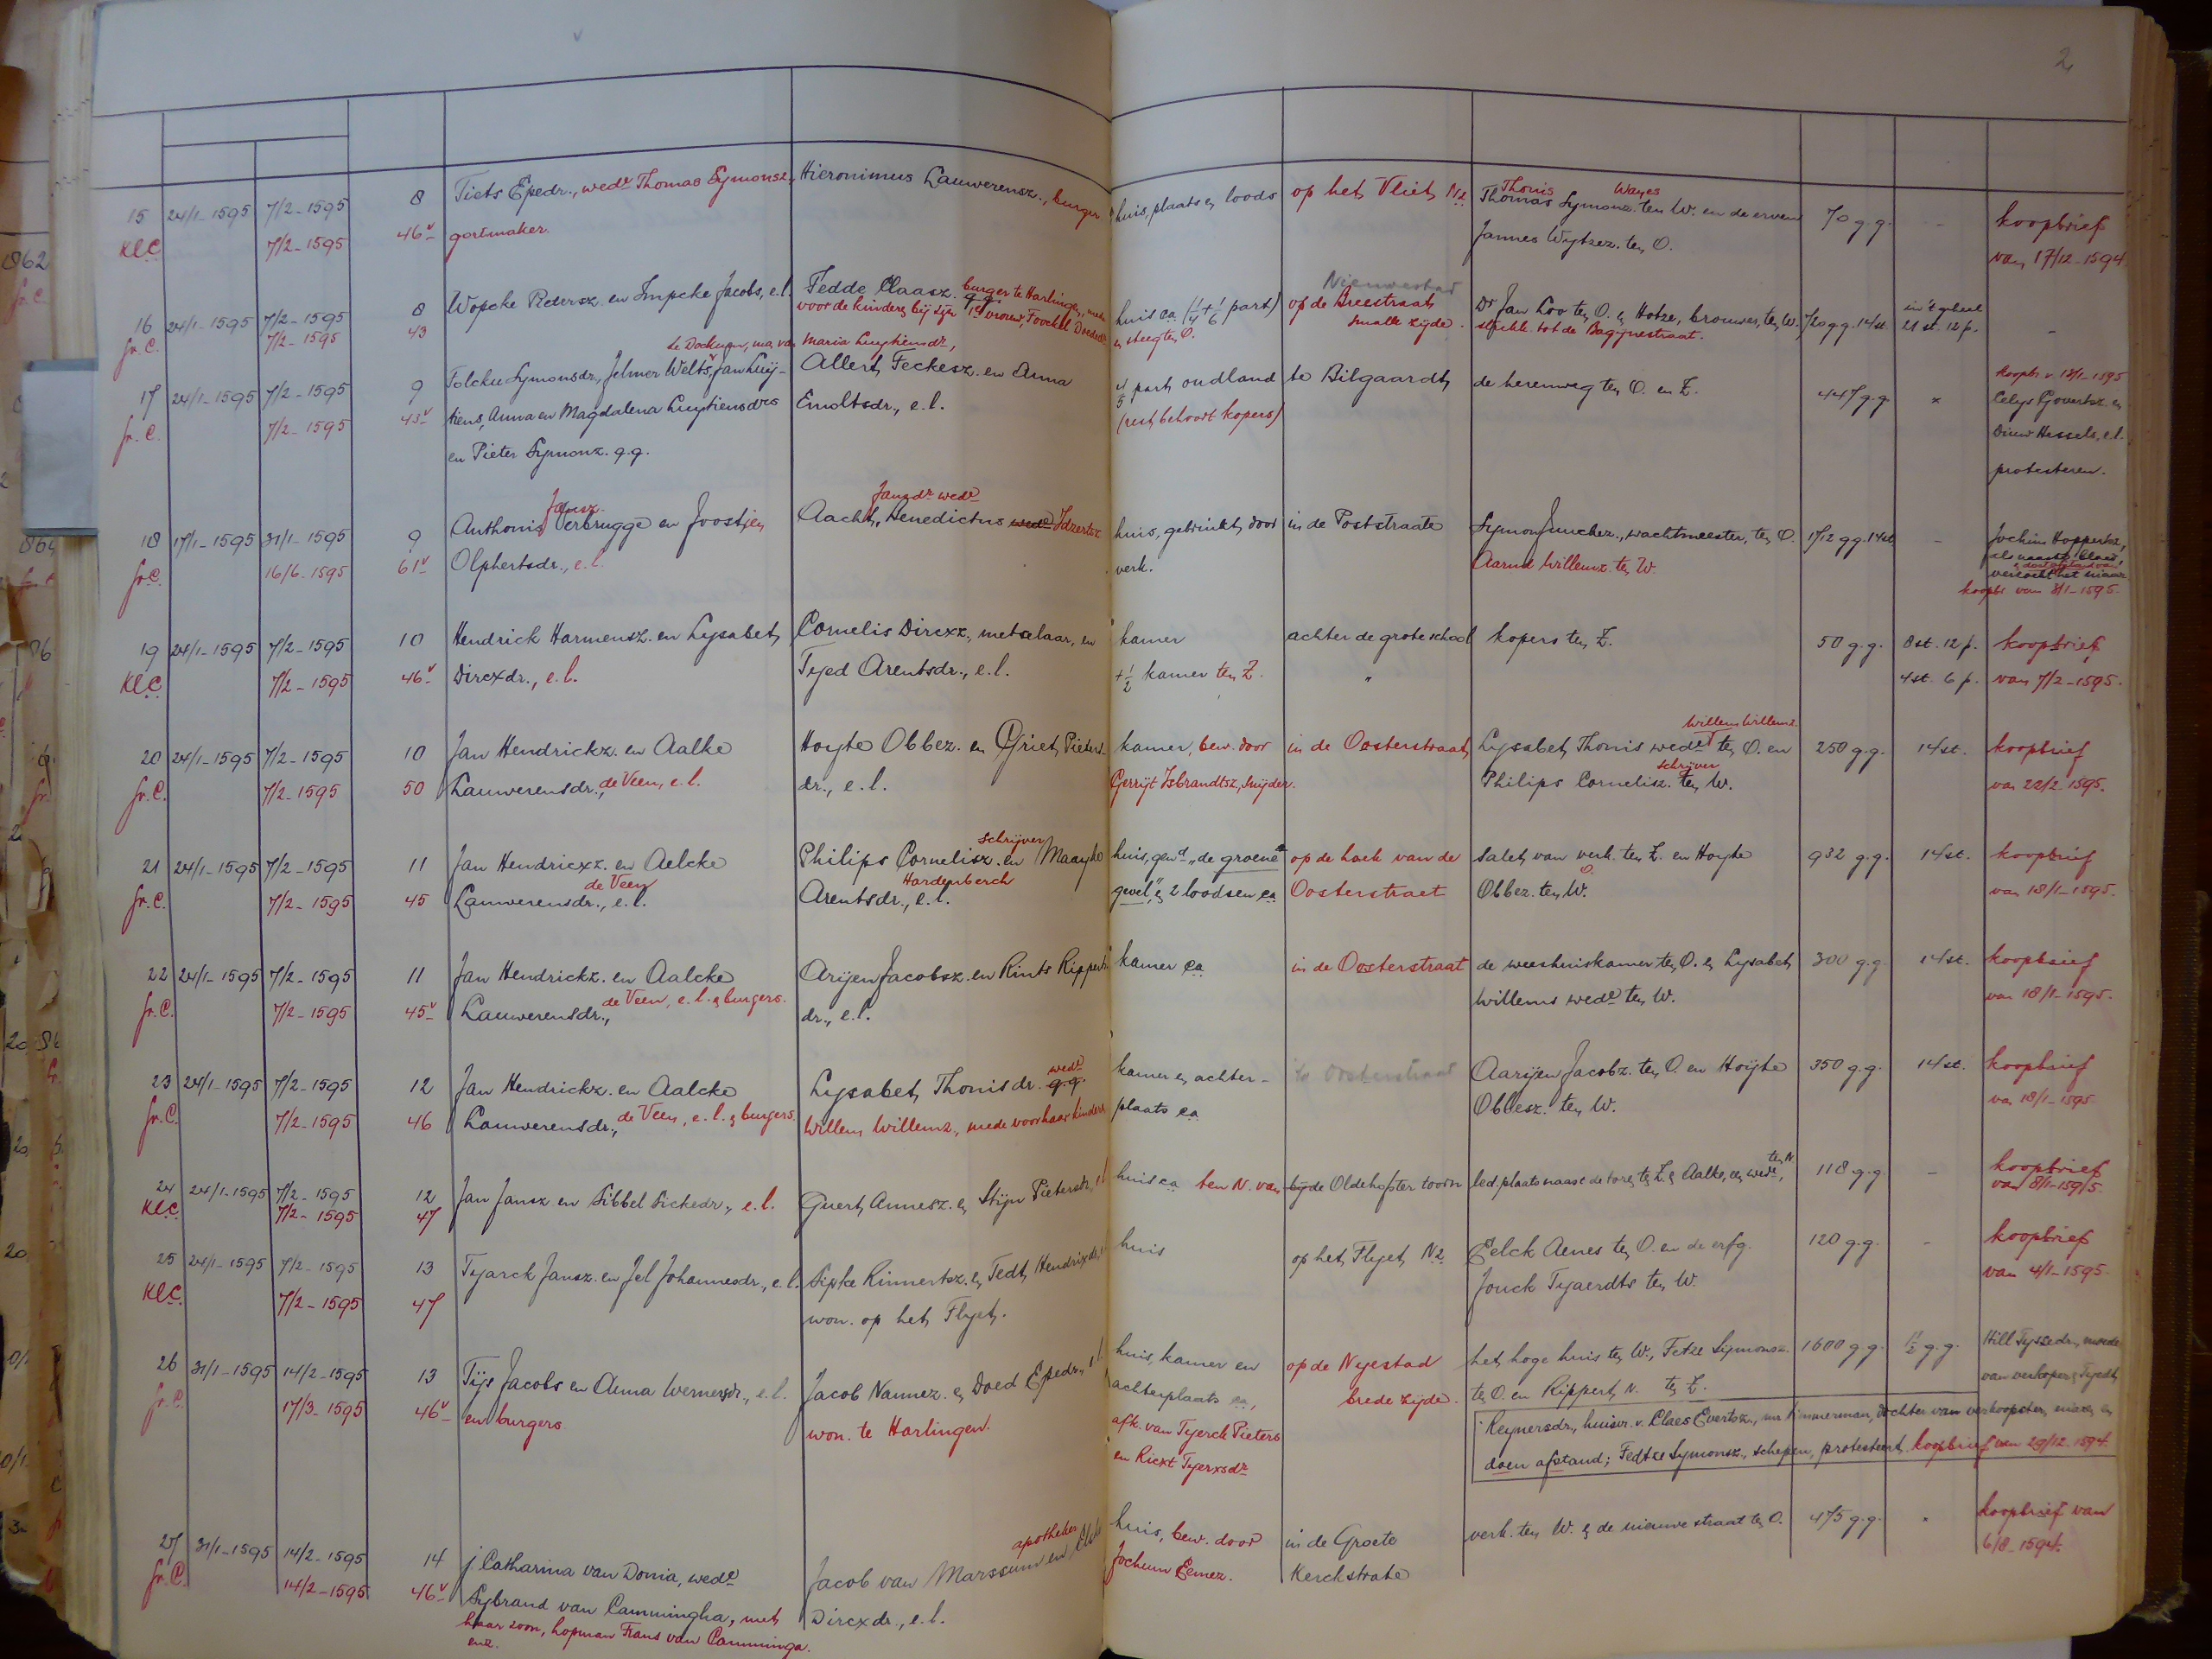 2
15 24/1-1595 7/2-1595 8 Tiets Epedr., wedᵉ Thomas Symonsz., Hieronimus Lauwerensz., burger huis, plaats en loods op het Vliet Nz. Thonis Wayes Thomas Symonsz. ten W. en de erven 70 g.g. - koopbrief
KlC 7/2-1595 46v gortmaker. Jannes Wytzez. ten O. van 17/12-1594
16 24/1-1595 7/2-1595 8 Wopcke Pietersz. en Impcke Jacobs, e.l. Fedde Claasz. q.q. burger te Harlingen, huis ca (1/4 + 1/6 part) Nieuwestad op de Breestraat Dr Jan Loo ten O. en Hotze, brouwer, ten W. 720 g.g. 14 st. in 't geheel 21 st. 12 p. -
gr.C. 7/2-1595 43 voor de kinders bij zijn 1e vrouw, Foockel en steeg ten O. smalle zijde. strekk. tot de Bagijnestraat.
te Dockum, ma. van Maria Luytiensdr.,
17 24/1-1595 7/2-1595 9 Tolcku Symonsdr., Jelmer Welts, Jan Luij- Allert Feckesz. en Anna 4/5 part oudland te Bilgaardt de herenweg ten O. en Z. 447 g.g. x koopbr. v. 12/1-1595
gr.C. 7/2-1595 43v tiens, Anna en Magdalena Luytiensdrs Emoltsdr., e.l. (rest behoort kopers) Celys Govertsz. en
en Pieter Symonz. q.q. Diuw Hessels, e.l.
protesteren.
18 17/1-1595 31/1-1595 9 Anthonis Jansz. Verbrugge en Joostjen Aacht Jansdr. wedᵉ Benedictus wedᵉ Idzertsz. huis, gebruikt door in de Poststraate Symon Junckez., wachtmeester, ten O. 1712 g.g. 14 st. - Jochim Hoppertsz.,
gr.C. 16/6-1595 61v Olphertsdr., e.l. verk. Aarnd Willemz. ten W. als naaste
versoekt het niaar
koopbr. van 8/1-1595.
19 24/1-1595 7/2-1595 10 Hendrick Harmensz. en Lysabet Cornelis Dircxz., metselaar, en kamer achter de grote school kopers ten Z. 50 g.g. 8 st. 12 p. koopbrief
KlC 7/2-1595 46v Dircxdr., e.l. Tyed Arentsdr., e.l. + 1/2 kamer ten Z. " 4 st. 6 p. van 7/2-1595.
20 24/1-1595 7/2-1595 10 Jan Hendrickz. en Aalke Hoyte Obbez. en Griet Pieters- kamer, bew. door in de Oosterstraat Lysabet Thonis wedᵉ Willem Willemz. ten O. en 250 g.g. 14 st. koopbrief
gr.C. 7/2-1595 50 Lauwerensdr., de Veen, e.l. dr., e.l. Gerrijt Isbrandtsz., snijder. Philips Cornelisz. schrijver ten W. van 22/2-1595.
21 24/1-1595 7/2-1595 11 Jan Hendricxz. en Aelcke Philips Cornelisz. schrijver en Maayke huis, gend. "de groene op de hoek van de Salet van verk. ten Z. en Hoyte 932 g.g. 14 st. koopbrief
gr.C. 7/2-1595 45 Lauwerensdr., de Veen e.l. Arentsdr., Hardenberch e.l. gevel", en 2 loodsen ca Oosterstraet Obbez. ten W. O. van 18/1-1595.
22 24/1-1595 7/2-1595 11 Jan Hendrickz. en Aalcke Arijen Jacobsz. en Rints Ripperts- kamer ca in de Oosterstraat de weeshuiskamer ten O. en Lysabet 300 g.g. 14 st. koopbrief
gr.C. 7/2-1595 45v Lauwerensdr., de Veen, e.l. en burgers. dr., e.l. Willems wedᵉ ten W. van 18/1-1595.
23 24/1-1595 7/2-1595 12 Jan Hendrickz. en Aalcke Lysabet Thonisdr. wedᵉ q.q. kamer en achter- in Oosterstraat Aarijen Jacobz. ten O. en Hoijte 350 g.g. 14 st. koopbrief
gr.C. 7/2-1595 46 Lauwerensdr., de Veen, e.l. en burgers Willem Willemz., mede voor haar kinders plaats ca Obbesz. ten W. van 18/1-1595
24 24/1-1595 7/2-1595 12 Jan Jansz en Sibbel Sickedr., e.l. Guert Annesz. en Stijn Pietersdr. e.l. huis ca ten N. van bij de Oldehofster toorn led. plaats naast de toren ten Z. en Aalke, een wedᵉ, ten N 118 g.g. - koopbrief
KlC. 7/2-1595 47 van 8/1-1595.
25 24/1-1595 7/2-1595 13 Tyarck Jansz. en Jel Johannesdr., e.l. Sipke Rinnertsz. en Tedt Hendrixdr. huis op het Flyet Nz Eelck Aenes ten O. en de erfg. 120 g.g. - koopbrief
KlC. 7/2-1595 47 won. op het Flyet. Jouck Tyaerdts ten W. van 4/1-1595
26 31/1-1595 14/2-1595 13 Tijs Jacobs en Anna Wernersdr., e.l. Jacob Nannez. en Doed Epedr., e.l. huis, kamer en op de Nyestad het hoge huis ten W., Fetze Symonsz. 1600 g.g. 1/2 g.g. Hill Tyssedr., moeder
gr.C. 17/3-1595 46v en burgers. won. te Harlingen. achterplaats ca, brede zijde. ten O. en Rippert N. ten Z. van verkoper, en Tyedt
afk. van Tyerck Pieters Reynersdr., huisvr. v. Claes Evertsz., mr timmerman, dochter van verkoopster,
en Rickt Tyerxsdr doen afstand; Fedtze Symonsz., schepen, protesteert. koopbrief van 29/12-1594.
27 31/1-1595 14/2-1595 14 j. Catharina van Donia, wedᵉ Jacob van Marssum apotheker en huis, bew. door in de Groete verk. ten W. en de nieuwe straat ten O. 475 g.g. " koopbrief van
gr.C. 14/2-1595 46v Sybrand van Cammingha, met Dircxdr., e.l. Jochum Eemez. Kerckstrate 6/8-1594.
haar zoon, hopman Frans van Camminga.
enz.